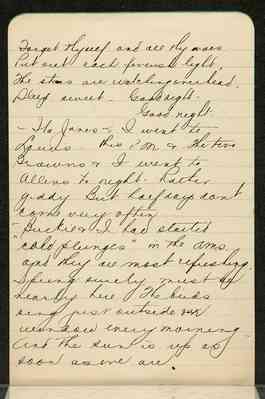 Forget thyself and all thy woes
Put out each feverish light,
The stars are watching overhead,
Sleep sweet - Good night -
Good night.
- Ita Janes & I went to
Lewis this P.M & the two
Browns & I went to
Allens to night. Rather
giddy But half days don't
come very often.
Buckie & I had started
"cold plunges" in the A.M.s
and they are most refreshing.
Spring surely must be
nearly here The birds
sing just outside our
window every morning
and the sun is up as
soon as we are.